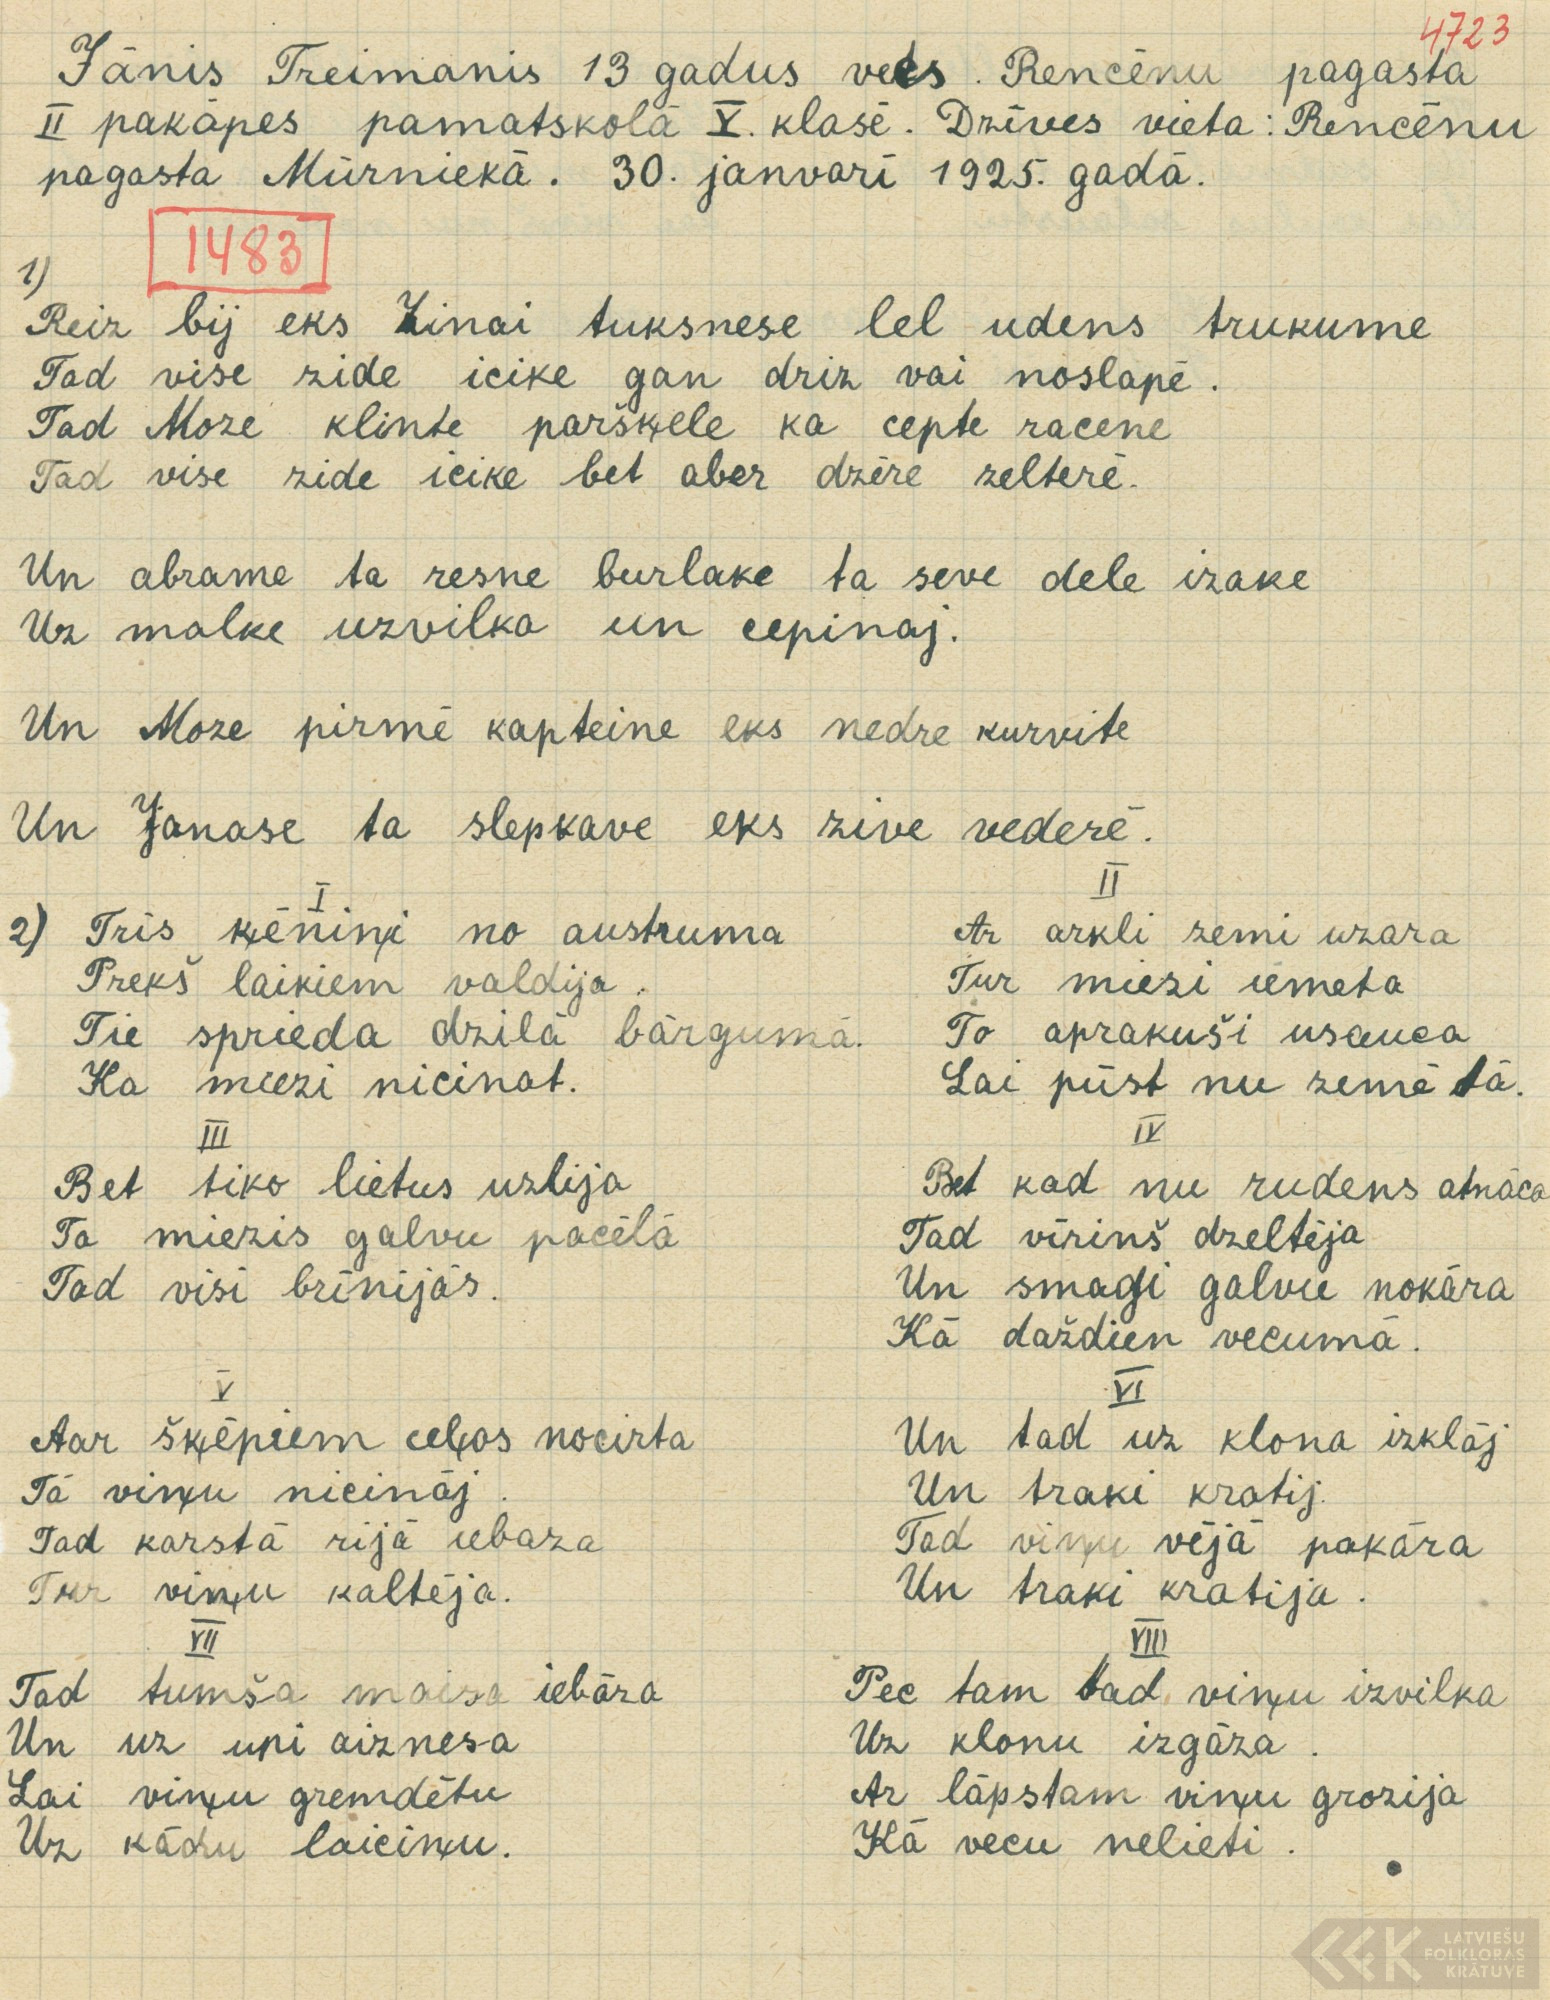 4723
Jānis Treimanis 13 gadus vecs. Rencēnu pagasta
II pakāpes pamatskolā V. klasē. Dzīves vieta: Rencēnu
pagasta Mūrniekā. 30. janvarī 1925. gadā.
1483
1)
Reiz bij eks Zinai tuksnese lel udens trukume
Tad vise zide icike gan driz vai noslapē.
Tad Moze klinte paršķele ka cepte racene
Tad vise zide icike bet aber dzēre zelterē.
Un abrame ta resne burlake ta seve dele izake
Uz malke uzvilka un cepinaj.
Un Moze pirmē kapteine eks nedre kurvite
Un Jonase ta slepkave eks zive vederē.
I
2) Tris ķēniņi no austruma
Prekš laikiem valdija.
Tie sprieda dzilā bārgumā.
Ka miezi nicinat.
II
Ar arkli zemi uzara
Tur miezi iemeta
To aprakuši usauca
Lai pūst nu zemē tā.
III
Bet tiko lietus uzlija
Ta miezis galvu pacēlā
Tad visi brīnijās.
IV
Bet kad nu rudens atnāca
Tad vīrinš dzeltēja
Un smagi galvu nokāra
Kā daždien vecumā.
V
Aar šķēpiem ceļos nocirta
Tā viņu nicināj.
Tad karstā rijā iebaza
Tur viņu kaltēja.
VI
Un tad uz klona izklāj
Un traki kratij.
Tad viņu vējā pakāra
Un traki kratija.
VII
Tad tumša maisa iebāza
Un uz upi aiznesa
Lai viņu gremdētu
Uz kādu laiciņu.
VIII
Pec tam tad viņu izvilka
Uz klonu izgāza.
Ar lāpstam viņu grozija
Kā vecu nelieti.
LATVIEŠU
FOLKLORAS
KRĀTUVE